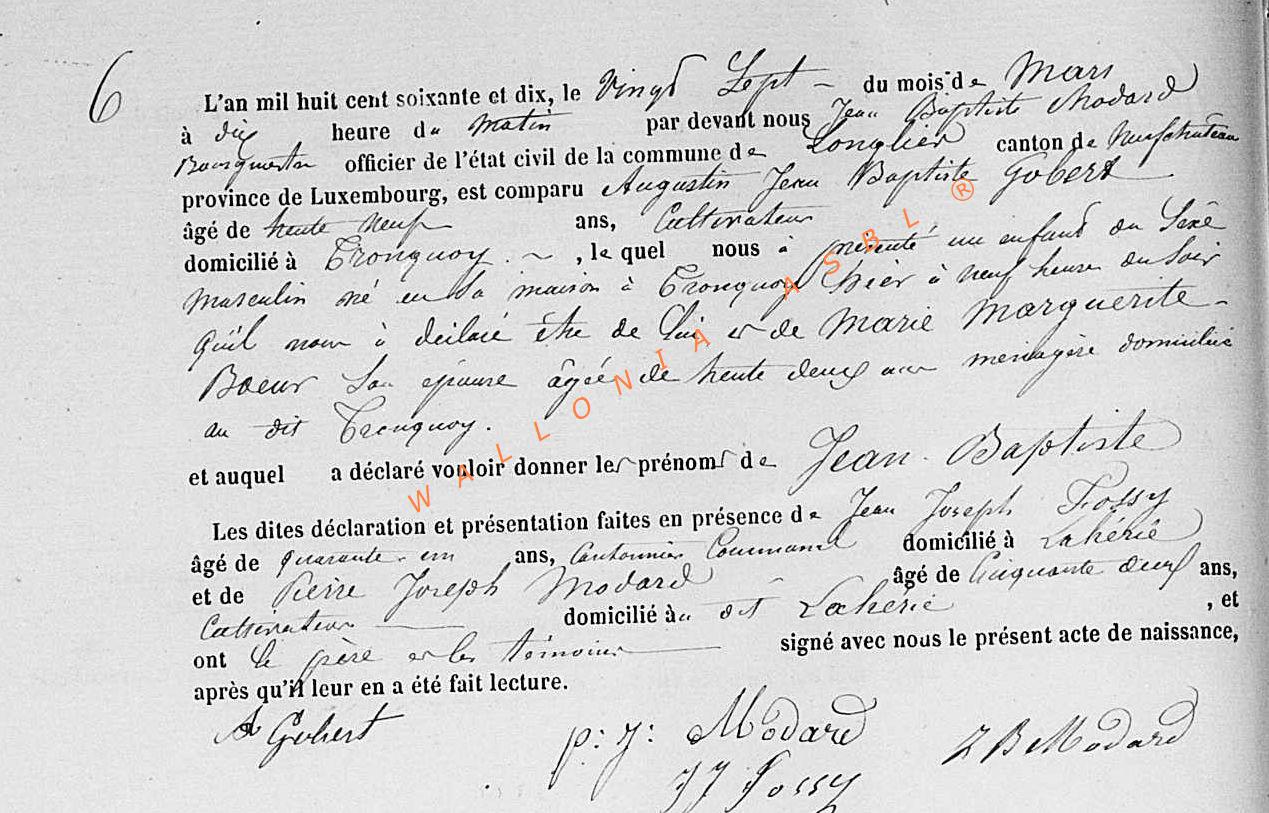 6
L'an mil huit cent soixante et dix, le Vingt Sept du mois de Mars
à dix heure du Matin par devant nous Jean Baptiste Modard
Bourgmestre officier de l'état civil de la commune de Longlier canton de Neufchateau
province de Luxembourg, est comparu Augustin Jean Baptiste Gobert
âgé de trente neuf ans, Cultivateur
domicilié à Tronquoy , le quel nous à présenté un enfant du Sexe
Masculin né en Sa maison à Tronquoy hier à neuf heures du Soir
qu'il nous à déclaré être de lui et de Marie Marguerite
Boeur Son épouse âgée de trente deux ans ménagère domiciliée
au dit Tronquoy.
et auquel a déclaré vouloir donner les prénoms de Jean-Baptiste
Les dites déclaration et présentation faites en présence de Jean Joseph Fossy
âgé de quarante-un ans, Cantonnier Communal domicilié à Lahérie
et de Pierre Joseph Modard âgé de Cinquante deux ans,
Cultivateur domicilié au dit Lahérie , et
ont le père et les témoins signé avec nous le présent acte de naissance,
après qu'il leur en a été fait lecture.
A Gobert p: j: Modard J B Modard
JJ Fossy
WALLONIA ASBL ®